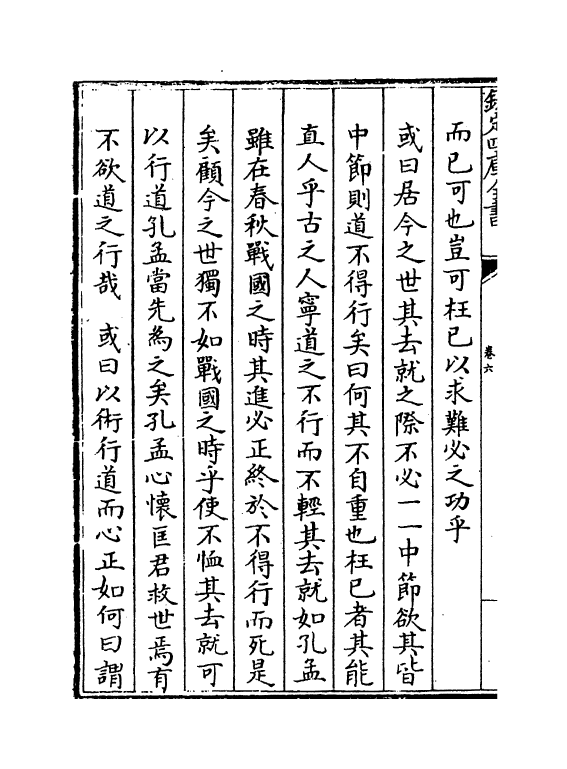 欽定四庫全書
卷六
而已可也豈可枉已以求難必之功乎
或曰居今之世其去就之際不必一一中節欲其皆
中節則道不得行矣曰何其不自重也枉已者其能
直人乎古之人寧道之不行而不輕其去就如孔孟
雖在春秋戰國之時其進必正終於不得行而死是
矣顧今之世獨不如戰國之時乎使不恤其去就可
以行道孔孟當先為之矣孔孟心懷匡君救世焉有
不欲道之行哉　或曰以術行道而心正如何曰謂